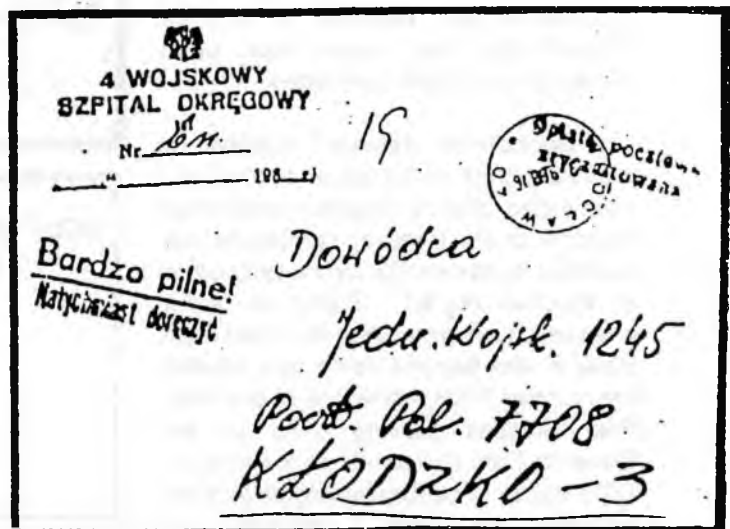 4 WOJSKOWY
SZPITAL OKRĘGOWY
Nr
198 r.
15
Opłata pocztowa
zryczałtowana
Bardzo pilne!
Natychmiast doręczyć
Dowódca
Jedn. Wojsk. 1245
Poczt. Pol. 7708
KŁODZKO-3